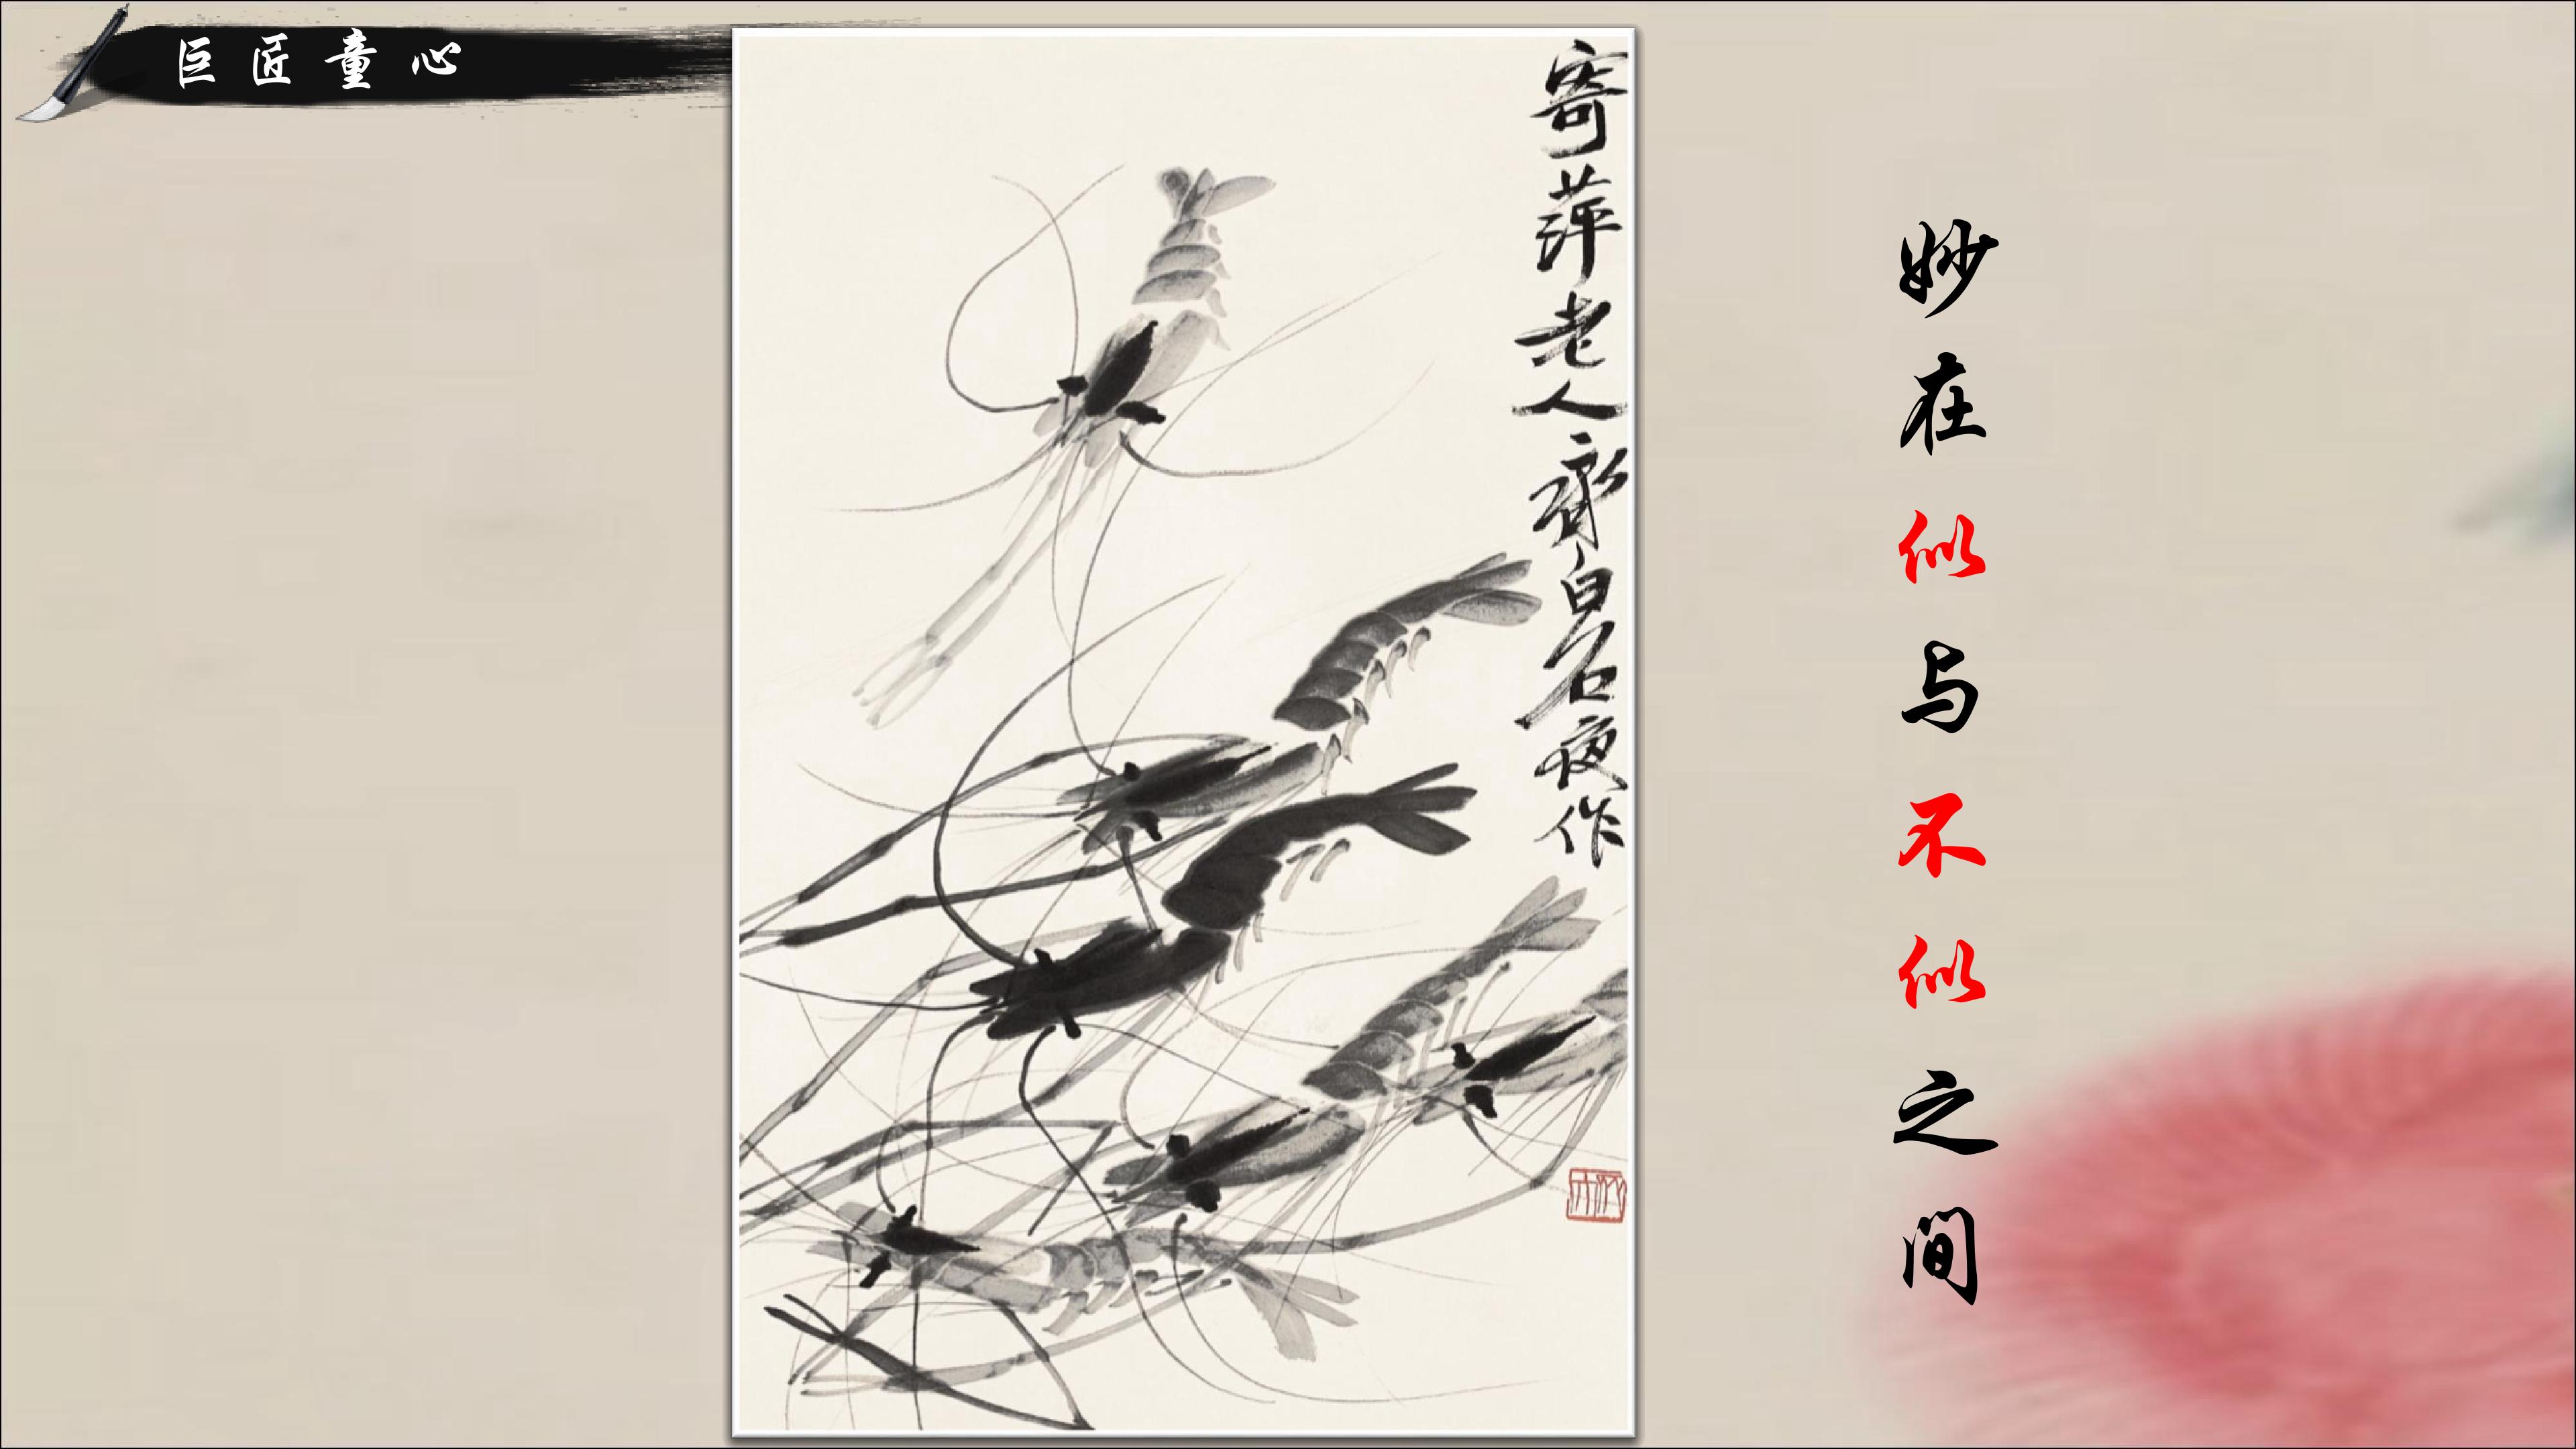 巨匠童心
寄萍老人齐白石夜作
妙在似与不似之间